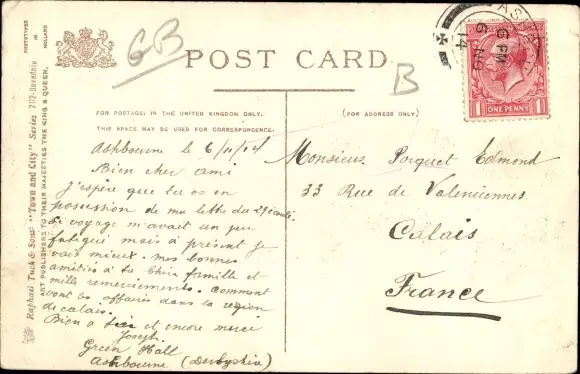 PHOTOTYPED IN HOLLAND
GB
POST CARD
B
ASH
6 PM
6 NO
14
ONE PENNY
1 1
FOR POSTAGE IN THE UNITED KINGDOM ONLY.
THIS SPACE MAY BE USED FOR CORRESPONDENCE.
(FOR ADDRESS ONLY)
Raphael Tuck & Sons' "Town and City" Series 2112 Dovedale
ART PUBLISHERS TO THEIR MAJESTIES THE KING & QUEEN.
Ashbourne le 6/11/14
Bien cher ami
J'espère que tu es en
possession de ma lettre du 29 écoulé
Le voyage m'avait un peu
fatigué mais à présent je
vais mieux. Mes bonnes
amitiés à ta chère famille et
mille remerciements. Comment
vont les affaires dans la région
de calais.
Bien à toi et encore merci
Joseph
Green Hall
Ashbourne (Derbyshire)
Monsieur Porquet Edmond
33 Rue de Valenciennes
Calais
France